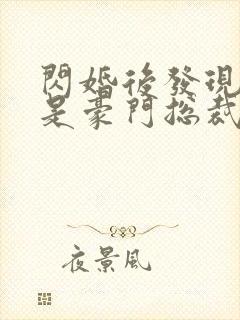 閃婚後發現
是豪門總裁
夜景風